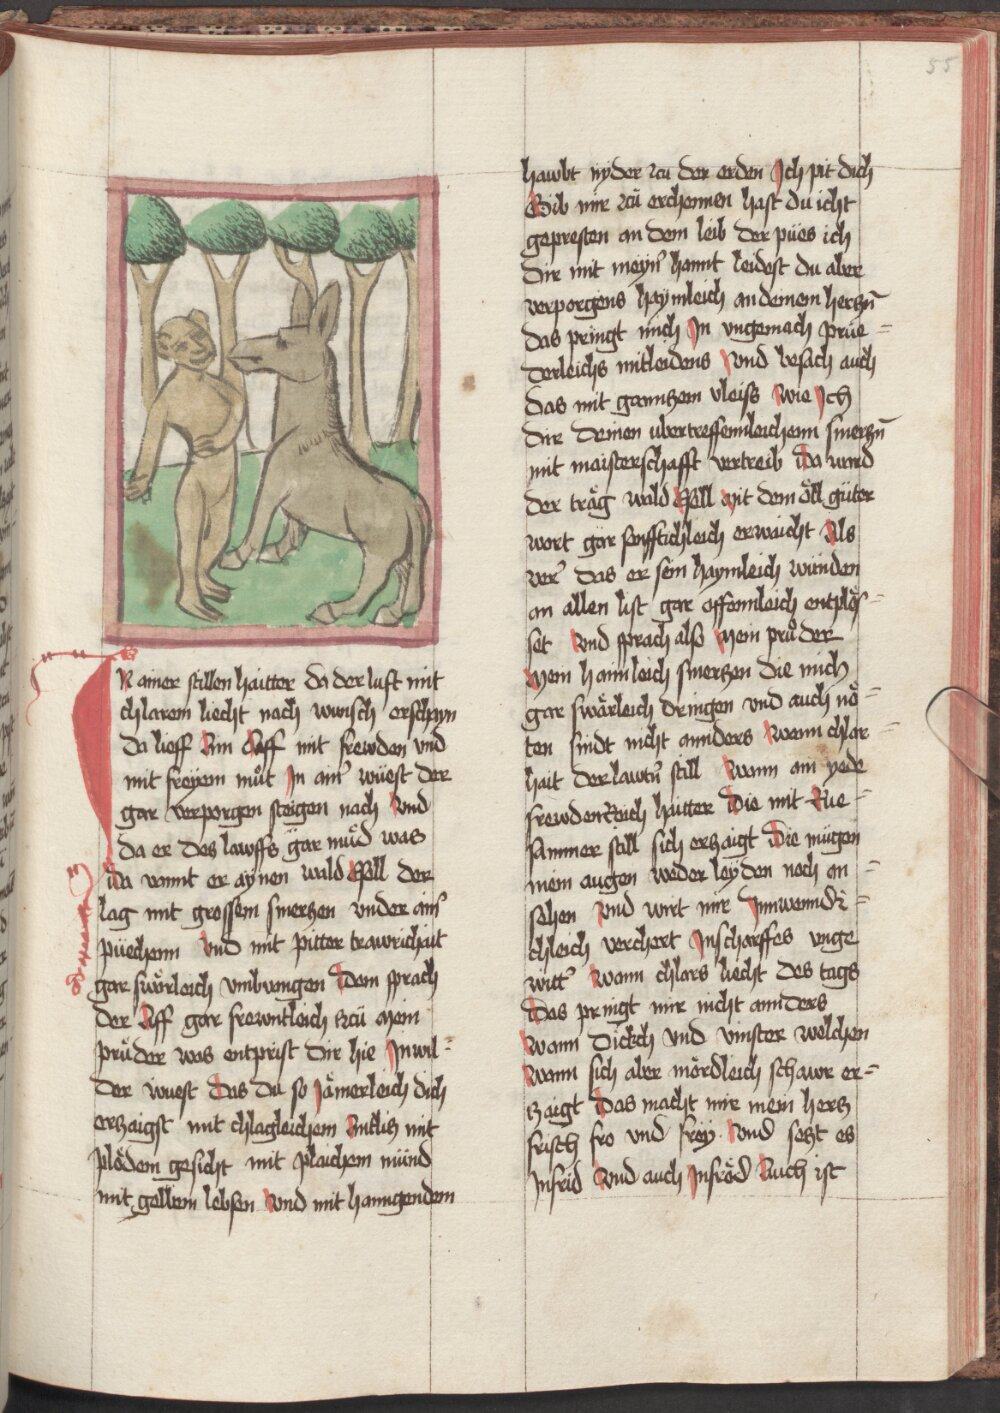 55
IN ainer stillen haitter da der luft mit
chlarem liecht nach wunsch erschayn
da lieff Ain Aff mit frewden vnd
mit freyem můt In ain̄ wüest der
gar verporgen steigen nach Vnd
da er des lawffs gar můd was
Da vonnt er aynen wald Esell der
lag mit grossem smerczen vnder ain̄
püechenn Vnd mit pitter trawrichait
gar swärleich vmbvangen Dem sprach
der Aff gar frewntleich zcu Mein
průder was entprist dir hie Inwil-
der wuest Das du so Jämerleich dich
erczaigst mit chlagleichem Antlicz mit
plödem gesicht mit plaichem münd
mit gellem lebsen Vnd mit hanngendem
hawbt nyder zcu der erden Ich pit dich
Gib mir zcü erchennen hast du icht
gepresten an dem leib Der pües ich
dir mit meyn̄ hannt leidest du aber
verporgens haymleich an deinem herczn̄
das pringt mich In vngemach prüe-
derleichs mitleidens Vnd besach auch
das mit ganczem vleiss Wie Ich
dir deinen vbertreffennleichenn smerczn̄
mit maisterschafft vertreib Da ward
der träg wald Esell Mit dem öll güter
wort gar senfftichleich erwaicht Als
ver̄ das er sein haymleich wunden
an allen list gar offennleich entplös-
set Vnd sprach also Mein průder
Mein haimleich smerczen die mich
gar swärleich dringen vnd auch nö-
ten sindt nicht annders Wenn chlar-
hait der lawtn̄ still Wann ain yede
frewdenReich haitter Die mit Rue-
sammer still sich erczaigt Die mügen
mein augen weder leyden noch an-
sehen Vnd wirt mir Innwendi-
chleich verchert Inscharffes vnge
witt̄ Wann chlars liecht des tags
Das pringt mir nicht annders
Wann Dickch vnd vinster wolchen
Wann sich aber mördleich schawr er-
czaigt Das macht mir mein hercz
frisch fro vnd frey Vnd seczt es
Infrid Vnd auch Infröd Auch ist